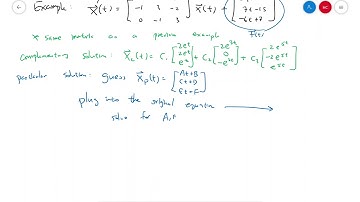 Example: x⃗'(t) = [ -1 3 -2 ; 0 -1 3 ] x⃗(t) + [ 7t-15 ; -6t+7 ]
f⃗(t)
* same matrix as a previous example
complementary solution: x⃗c(t) = C₁ [ 2eᵗ ; 2eᵗ ; eᵗ ] + C₂ [ -2e³ᵗ ; 0 ; -e³ᵗ ] + C₃ [ 2e⁵ᵗ ; -2e⁵ᵗ ; e⁵ᵗ ]
particular solution: guess x⃗p(t) = [ At+B ; Ct+D ; Et+F ]
plug into the original equation →
solve for A,